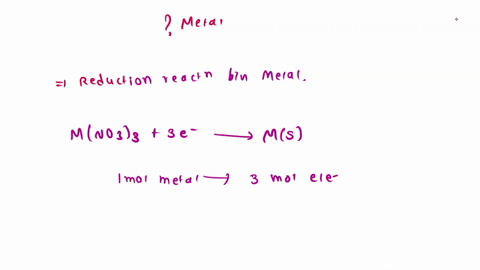 ? Metal
⇒ Reduction reactn bin Metal.
M(NO3)3 + 3e⁻ ⟶ M(s)
1mol metal ⟶ 3 mol ele⁻